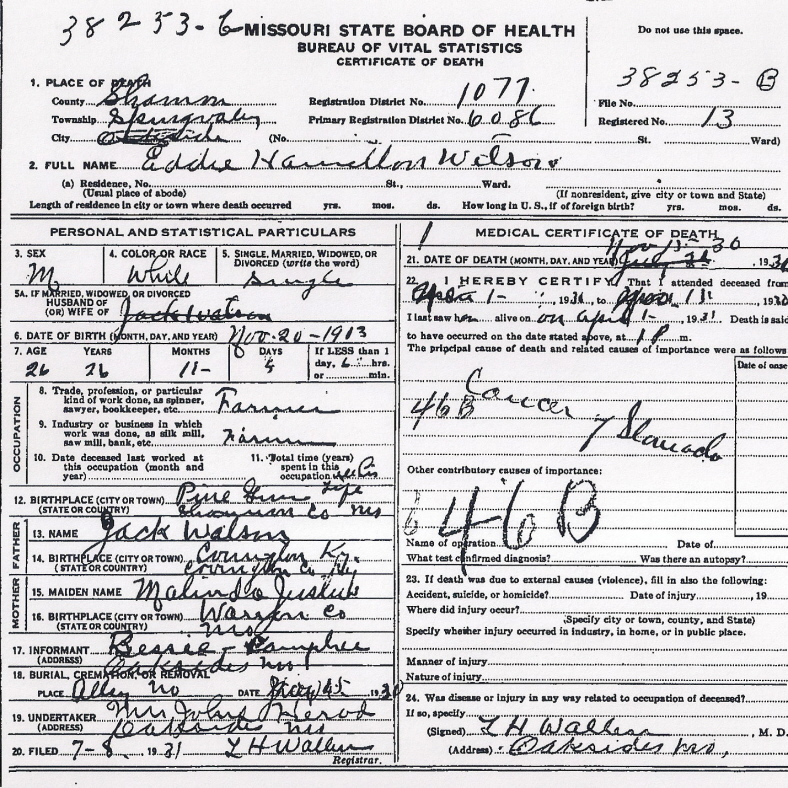 38253-6 MISSOURI STATE BOARD OF HEALTH
BUREAU OF VITAL STATISTICS
CERTIFICATE OF DEATH
Do not use this space.
38253-B
1. PLACE OF DEATH
County Shannon Registration District No. 1077 File No.
Township Primary Registration District No. 6086 Registered No. 13
City (No. St. Ward)
2. FULL NAME Eddie Hamilton Watson
(a) Residence, No. St., Ward.
(Usual place of abode) (If nonresident, give city or town and State)
Length of residence in city or town where death occurred yrs. mos. ds. How long in U. S., if of foreign birth? yrs. mos. ds.
PERSONAL AND STATISTICAL PARTICULARS
3. SEX 4. COLOR OR RACE 5. SINGLE, MARRIED, WIDOWED, OR
DIVORCED (write the word)
M White Single
5A. IF MARRIED, WIDOWED, OR DIVORCED
HUSBAND OF
(OR) WIFE OF Jack Watson
6. DATE OF BIRTH (MONTH, DAY, AND YEAR) Nov-20-1913
7. AGE YEARS MONTHS DAYS If LESS than 1
day, hrs.
or min.
26 26 11- 5
OCCUPATION
8. Trade, profession, or particular
kind of work done, as spinner,
sawyer, bookkeeper, etc. Farmer
9. Industry or business in which
work was done, as silk mill,
saw mill, bank, etc.
10. Date deceased last worked at
this occupation (month and
year)
11. Total time (years)
spent in this
occupation
Life
12. BIRTHPLACE (CITY OR TOWN) Pine
(STATE OR COUNTRY) Shannon Co Mo
FATHER
13. NAME Jack Watson
14. BIRTHPLACE (CITY OR TOWN) Covington Ky.
(STATE OR COUNTRY) Covington Co
MOTHER
15. MAIDEN NAME Malinda
16. BIRTHPLACE (CITY OR TOWN) Co
(STATE OR COUNTRY) Mo
17. INFORMANT Bessie
(ADDRESS) Oaksides Mo
18. BURIAL, CREMATION, OR REMOVAL
PLACE Alley Mo DATE 1930
19. UNDERTAKER Mr John
(ADDRESS) Oaksides Mo
20. FILED 7-8, 1931 L H Wallen
Registrar.
MEDICAL CERTIFICATE OF DEATH
Nov 15-30
21. DATE OF DEATH (MONTH, DAY, AND YEAR) , 193
22. I HEREBY CERTIFY, That I attended deceased from
1- , 193 , to , 193
I last saw h alive on April 1- , 1931 Death is said
to have occurred on the date stated above, at 1 P m.
The principal cause of death and related causes of importance were as follows
Date of onse
Cancer of
46B
Other contributory causes of importance:
46B
Name of operation Date of
What test confirmed diagnosis? Was there an autopsy?
23. If death was due to external causes (violence), fill in also the following:
Accident, suicide, or homicide? Date of injury , 19
Where did injury occur?
(Specify city or town, county, and State)
Specify whether injury occurred in industry, in home, or in public place.
Manner of injury
Nature of injury
24. Was disease or injury in any way related to occupation of deceased?
If so, specify
(Signed) L H Wallen , M. D.
(Address) Oaksides Mo,